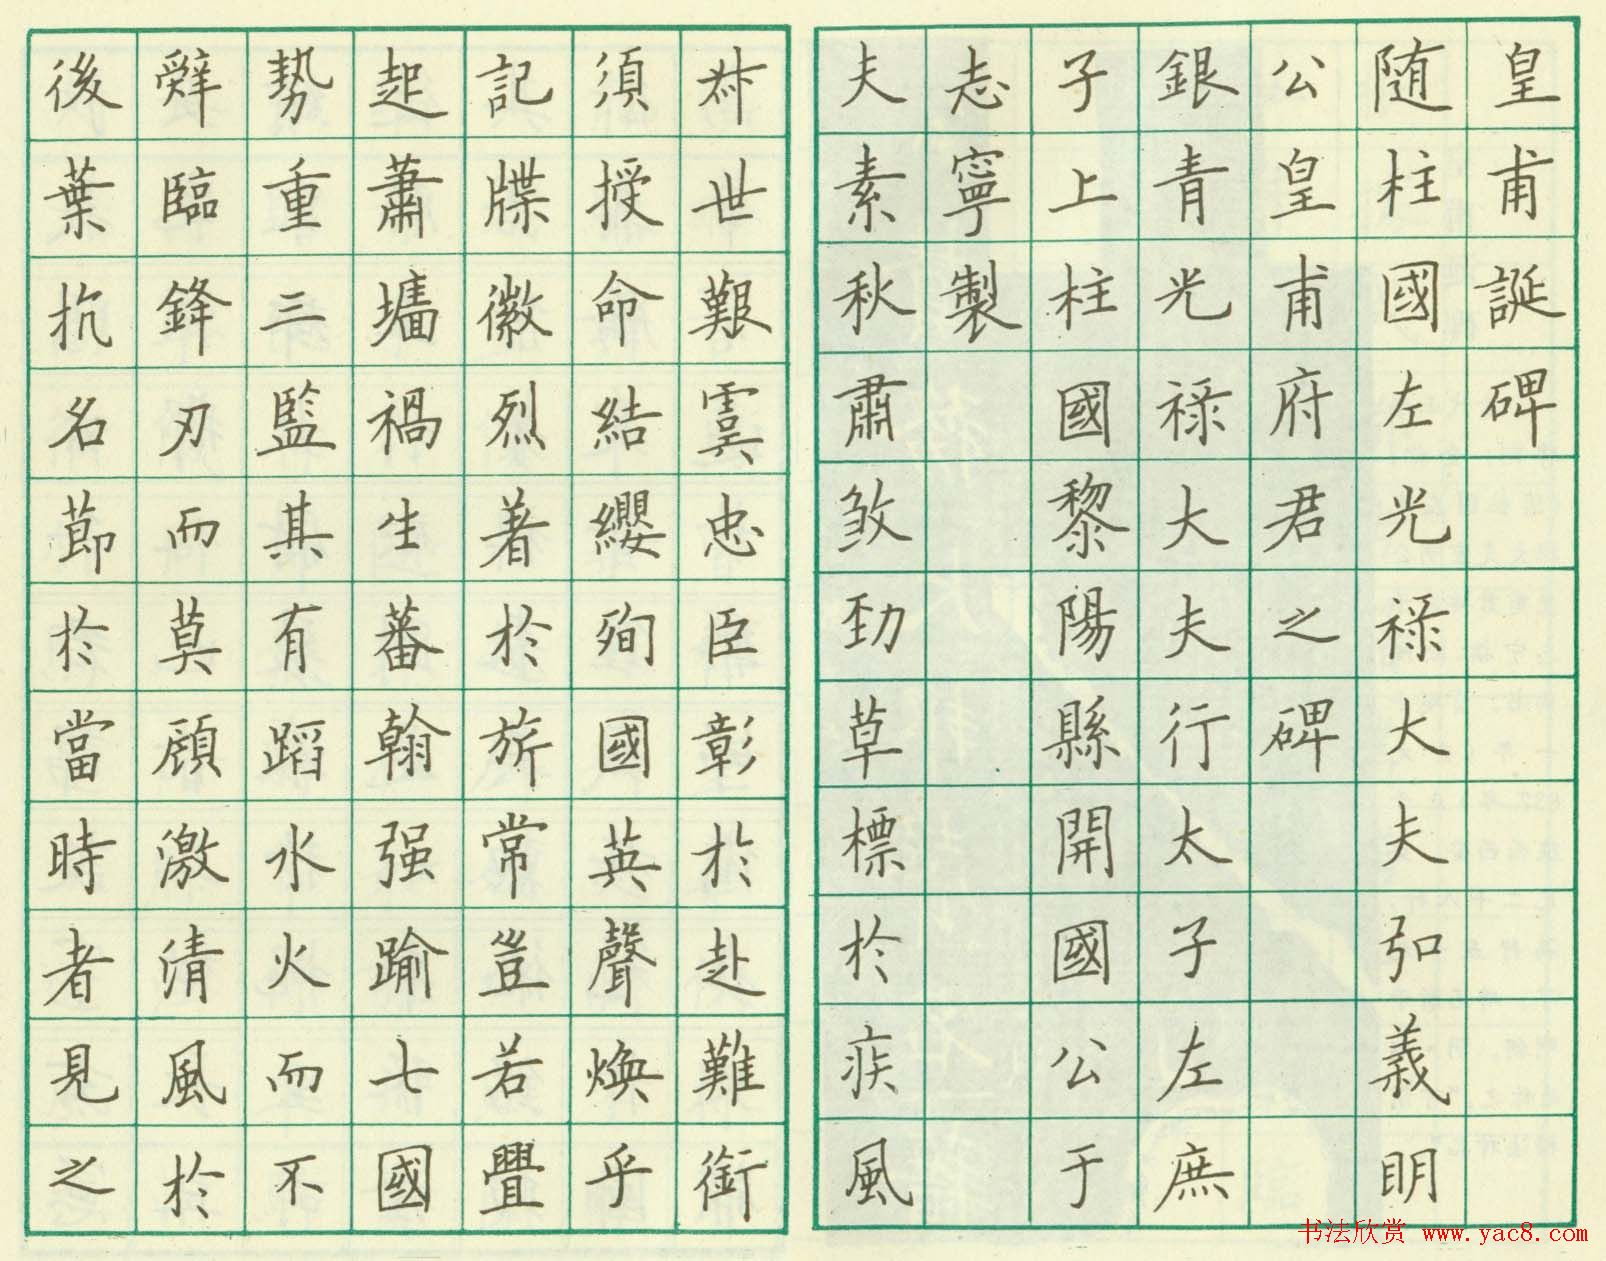 皇甫誕碑
随柱國左光禄大夫弘義明
公皇甫府君之碑
銀青光禄大夫行太子左庶
子上柱國黎陽縣開國公于
志寧製
夫素秋肅煞勁草標於疾風
叔世艱虞忠臣彰於赴難銜
須授命結纓殉國英聲煥乎
記牒徽烈著於旂常豈若舋
起蕭墻禍生蕃翰强踰七國
勢重三監其有蹈水火而不
辭臨鋒刃而莫顧激清風於
後葉抗名節於當時者見之
书法欣赏 www.yac8.com